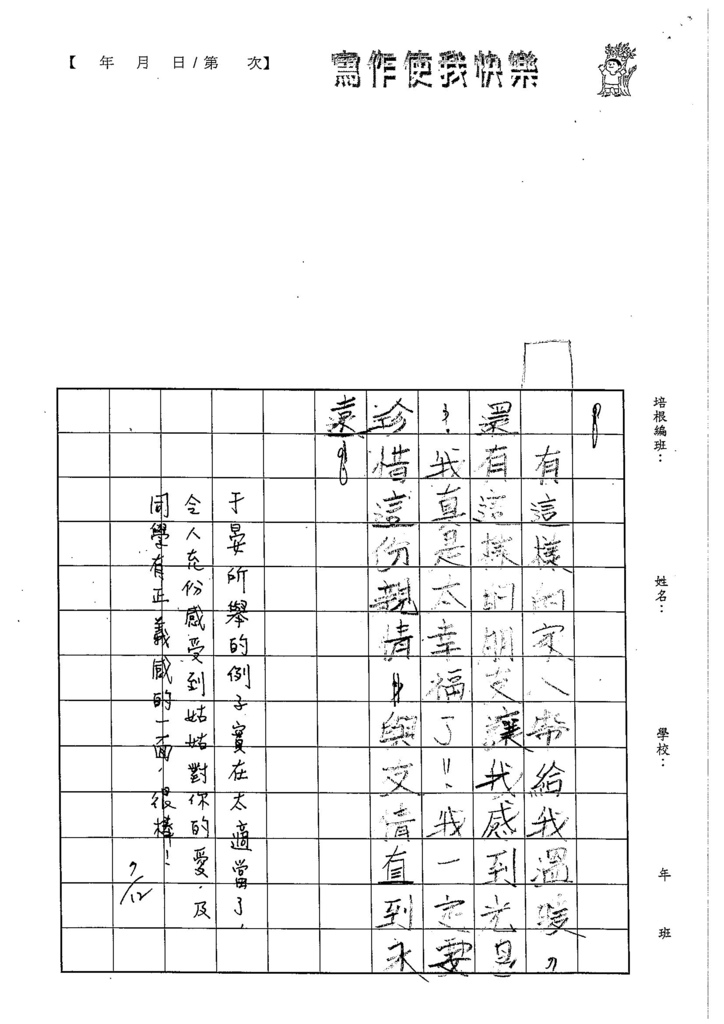 【　年　月　日/第　次】
寫作使我快樂
培根編班：
姓名：
學校：
年　班
有這樣的家人帶給我溫暖，
還有這樣的朋友讓我感到光
！我真是太幸福了!!我一定要
珍惜這份親情與友情直到永
遠
于晏所舉的例子實在太適當了，
令人充份感受到姑姑對你的愛，及
同學有正義感的一面，很棒！
7/12